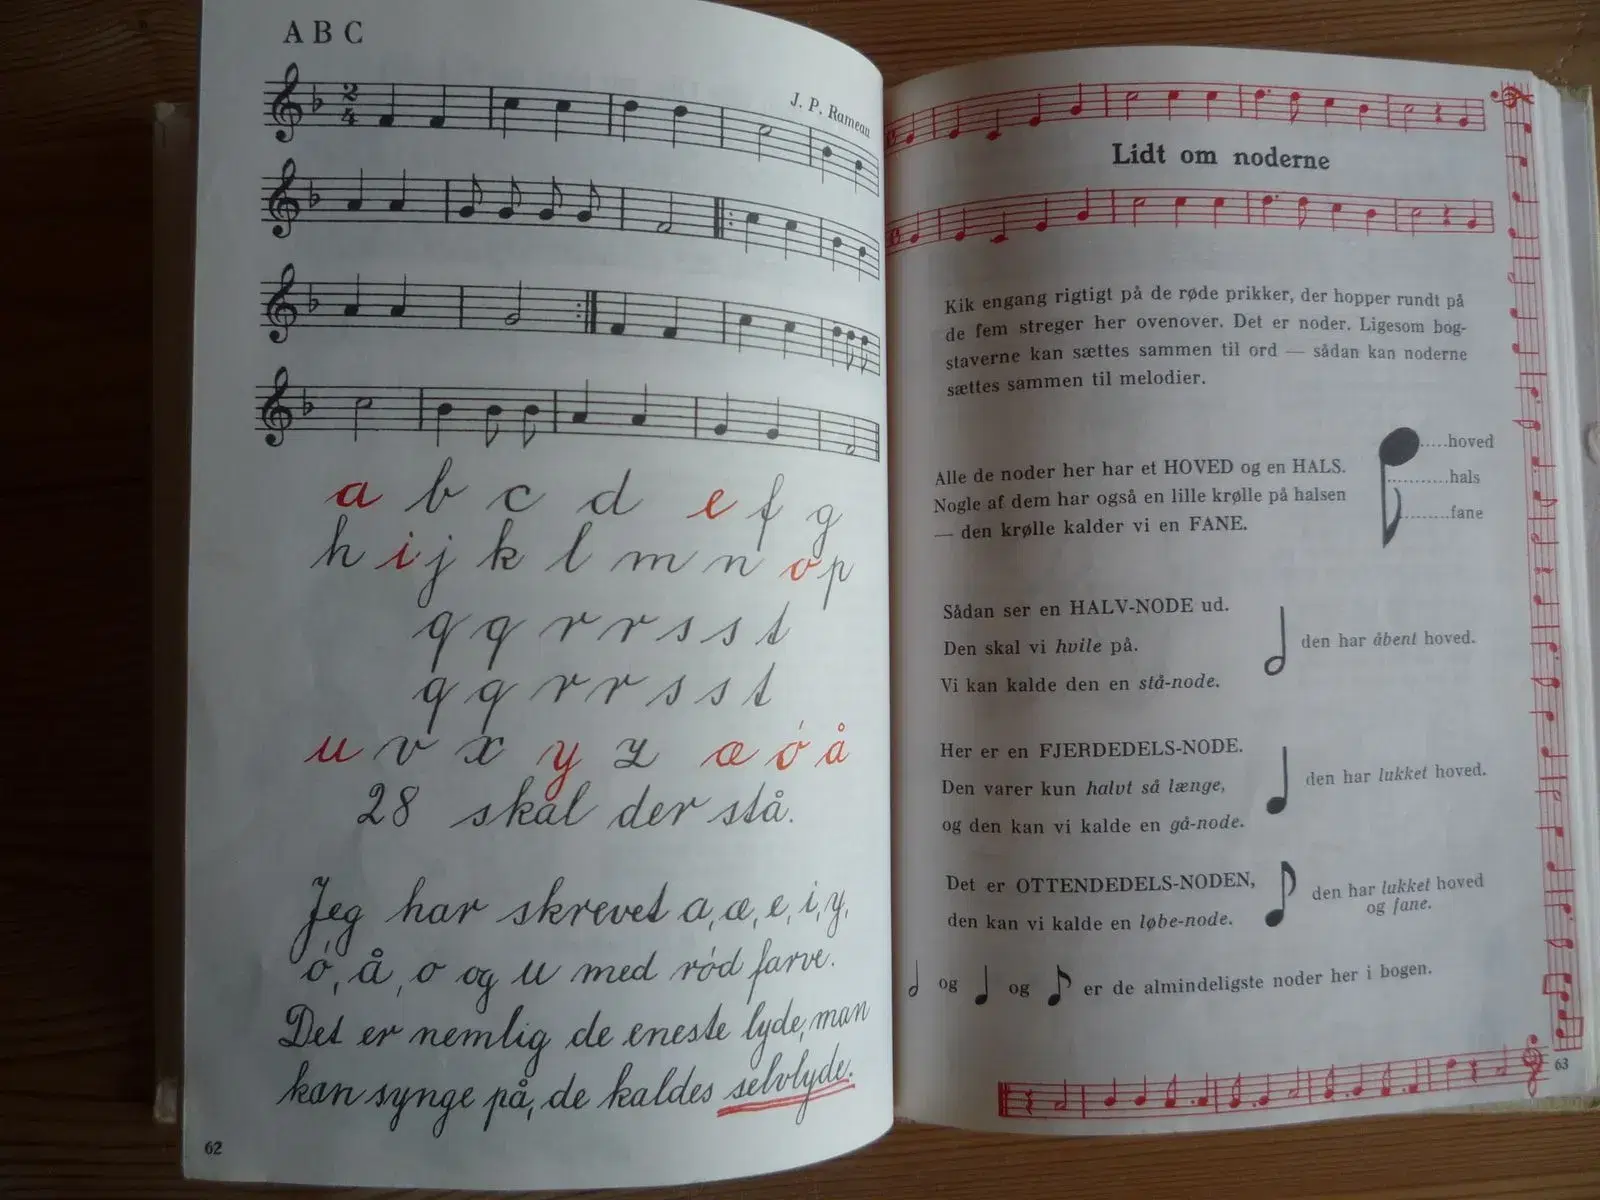 A B C
J. P. Rameau
2
4
a b c d e f g
h i j k l m n o p
q q r r s s t
q q r r s s t
u v x y z æ ø å
28 skal der stå.
Jeg har skrevet a, æ, e, i, y,
ø, å, o og u med rød farve.
Det er nemlig de eneste lyde, man
kan synge på, de kaldes selvlyde.
62
Lidt om noderne
Kik engang rigtigt på de røde prikker, der hopper rundt på
de fem streger her ovenover. Det er noder. Ligesom bog-
staverne kan sættes sammen til ord — sådan kan noderne
sættes sammen til melodier.
Alle de noder her har et HOVED og en HALS.
Nogle af dem har også en lille krølle på halsen
— den krølle kalder vi en FANE.
.....hoved
...........hals
.........fane
Sådan ser en HALV-NODE ud.
Den skal vi hvile på.
Vi kan kalde den en stå-node.
den har åbent hoved.
Her er en FJERDEDELS-NODE.
Den varer kun halvt så længe,
og den kan vi kalde en gå-node.
den har lukket hoved.
Det er OTTENDEDELS-NODEN,
den kan vi kalde en løbe-node.
den har lukket hoved
og fane.
og og er de almindeligste noder her i bogen.
63